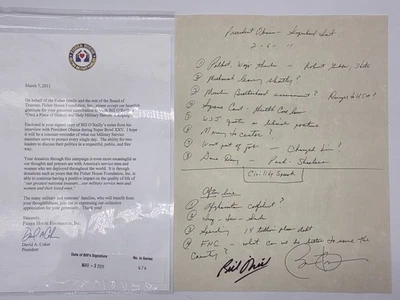 FISHER HOUSE
March 7, 2011
On behalf of the Fisher House and the rest of the Board of
Trustees, Fisher House Foundation, Inc., please accept our heartfelt
gratitude for your generous contribution to
"Own a Piece of History and Help Military Families" campaign
Enclosed is your signed copy of Bill O'Reilly's notes from his
interview with President Obama during Super Bowl XLV. I hope
it will be a constant reminder of what our Military Service
members serve to protect every single day: The ability for two
leaders to discuss their politics in a respectful, public, and free
way.
Your donation through this campaign is even more meaningful as
our thoughts and prayers are with America's service men and
women who are deployed throughout the world. It is through
donations such as yours that the Fisher House Foundation, Inc. is
able to continue having a positive impact on the quality of life of
"our greatest national treasure... our military service men and
women and their loved ones."
The many military and veterans' families, who will benefit from
your thoughtfulness, join me in expressing our collective
appreciation for your generosity. Thank you!
Sincerely,
FISHER HOUSE FOUNDATION, INC.
David A. Coker
President
Date of Bill's Signature
No. in Series
MAR - 3 2011
674
President Obama -
2-6-11
Mubarak leaving shortly?
Muslim Brotherhood assessment? Danger to USA?
Supreme Court - Health Care Law
WSJ quote
Move to center?
Worst part of job - Changed him?
Game Day - Pack - Steelers
Civility Speech
Other Lines
Afghanistan
Spending 14 trillion plus debt
FNC - what can we do better to serve the
Country?